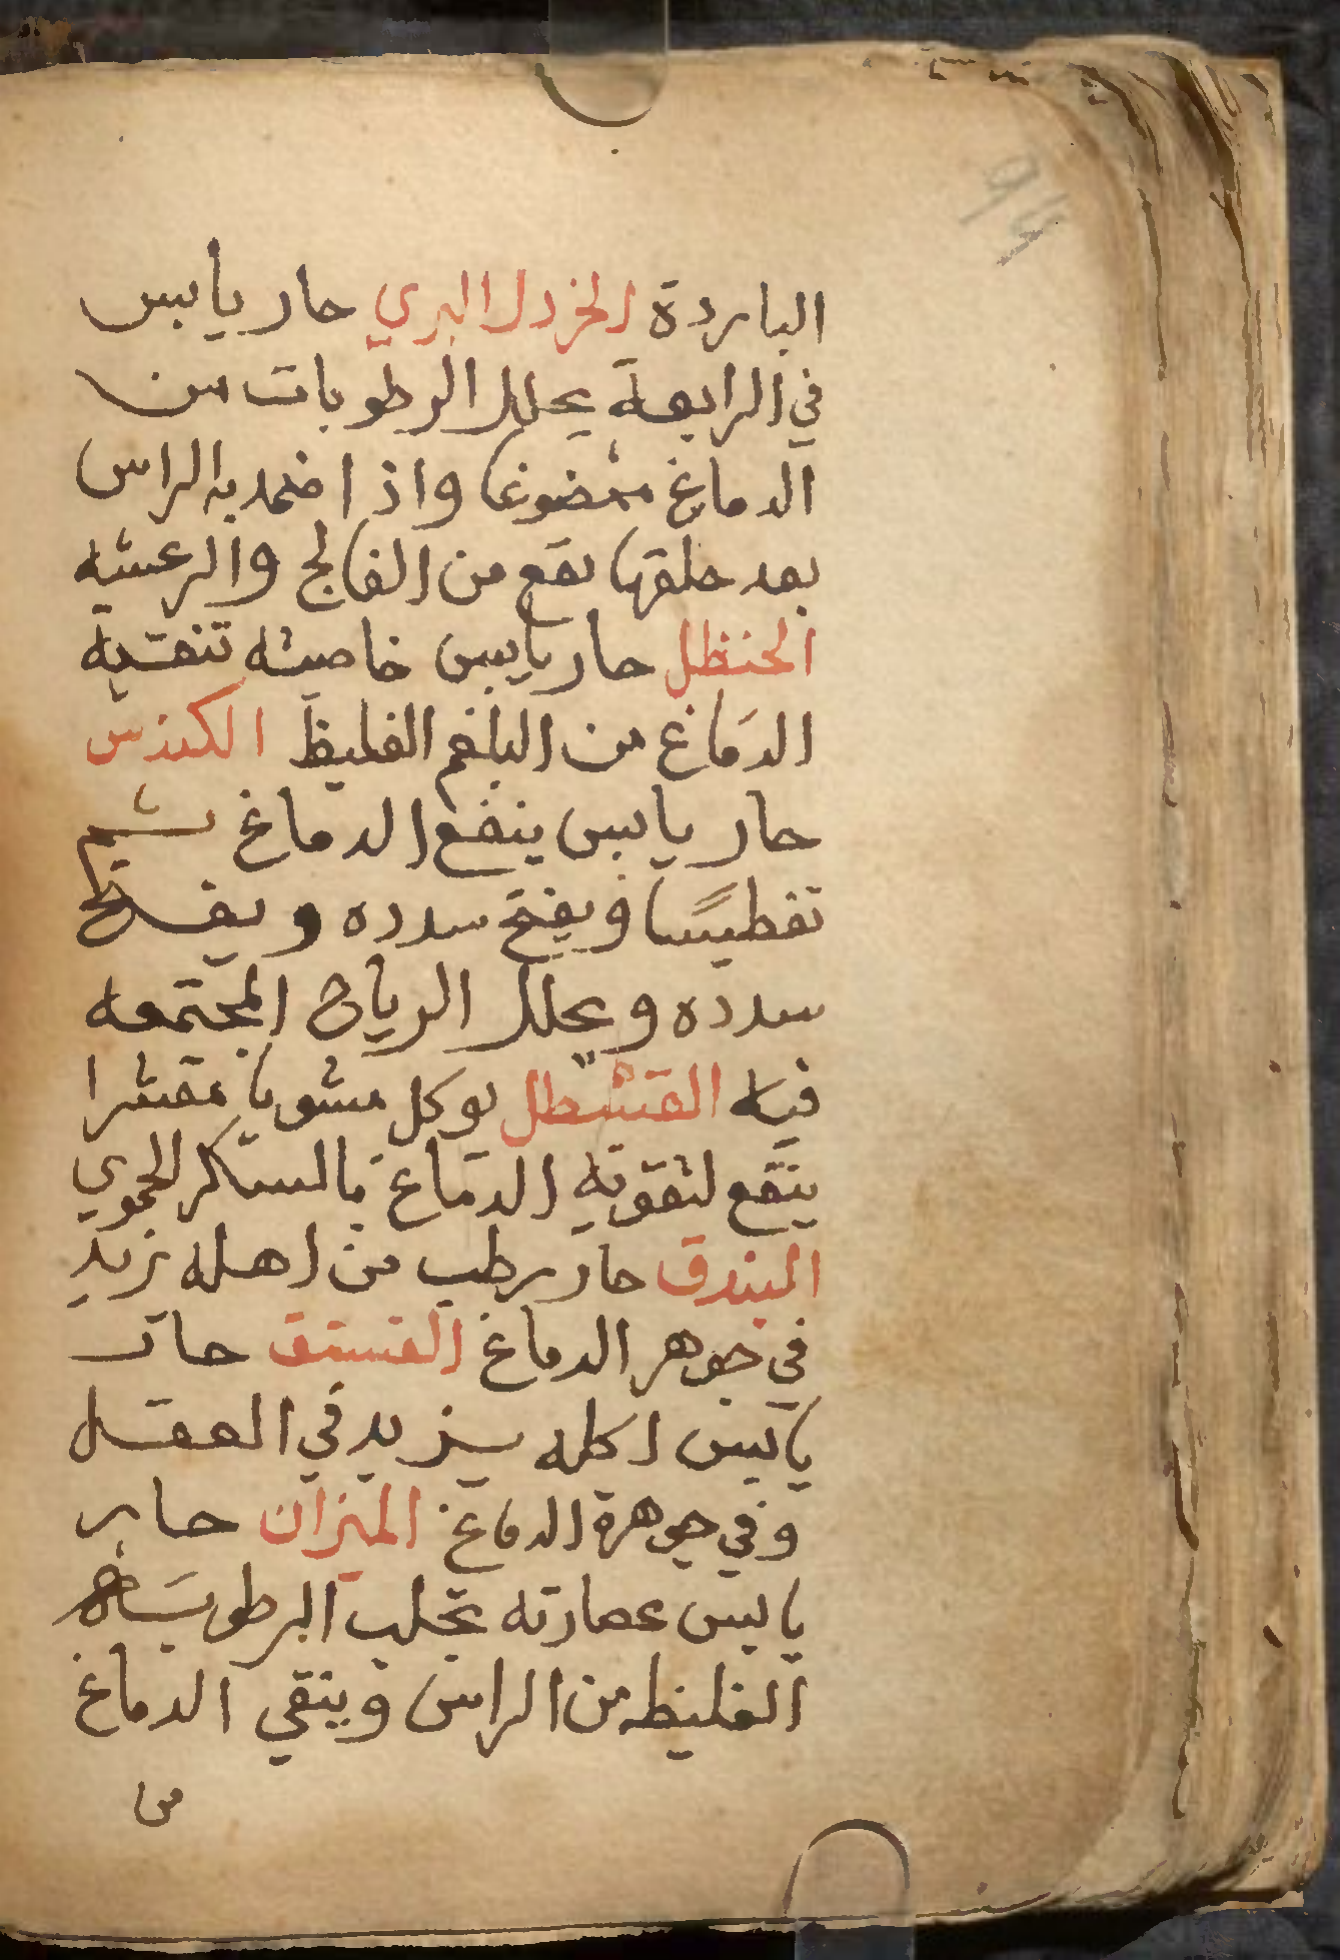 الباردة الخردل البري حار يابس
في الرابعة يحلل الرطوبات من
الدماغ ممضوغا واذا ضمد به الراس
بعد حلقها نفع من الفالج والرعشه
الحنظل حار يابس خاصته تنقية
الدماغ من البلغم الغليظ الكندس
حار يابس ينفع الدماغ بشم
تغطيسًا ويفتح سدده ويفتح
سدده ويحلل الرياح المجتمعه
فيه القشطل يوكل مشويا مقشرا
ينفع لتقوية الدماغ بالسكر الحموي
البندق حار رطب من اهله يزيد
في جوهر الدماغ الفستق حار
يابس اكله يزيد في العقل
وفي جوهرة الدماغ الميزان حار
يابس عصارته تجلب الرطوبات
الغليظه من الراس وينقي الدماغ
من